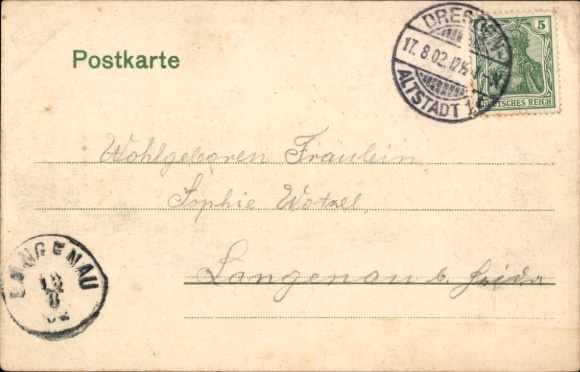 Postkarte
DRESDEN
17.8.02. 12½
ALTSTADT 1.
5
DEUTSCHES REICH
Wohlgeboren Fräulein
Sophie
Langenau b.
LANGENAU
18
8
02